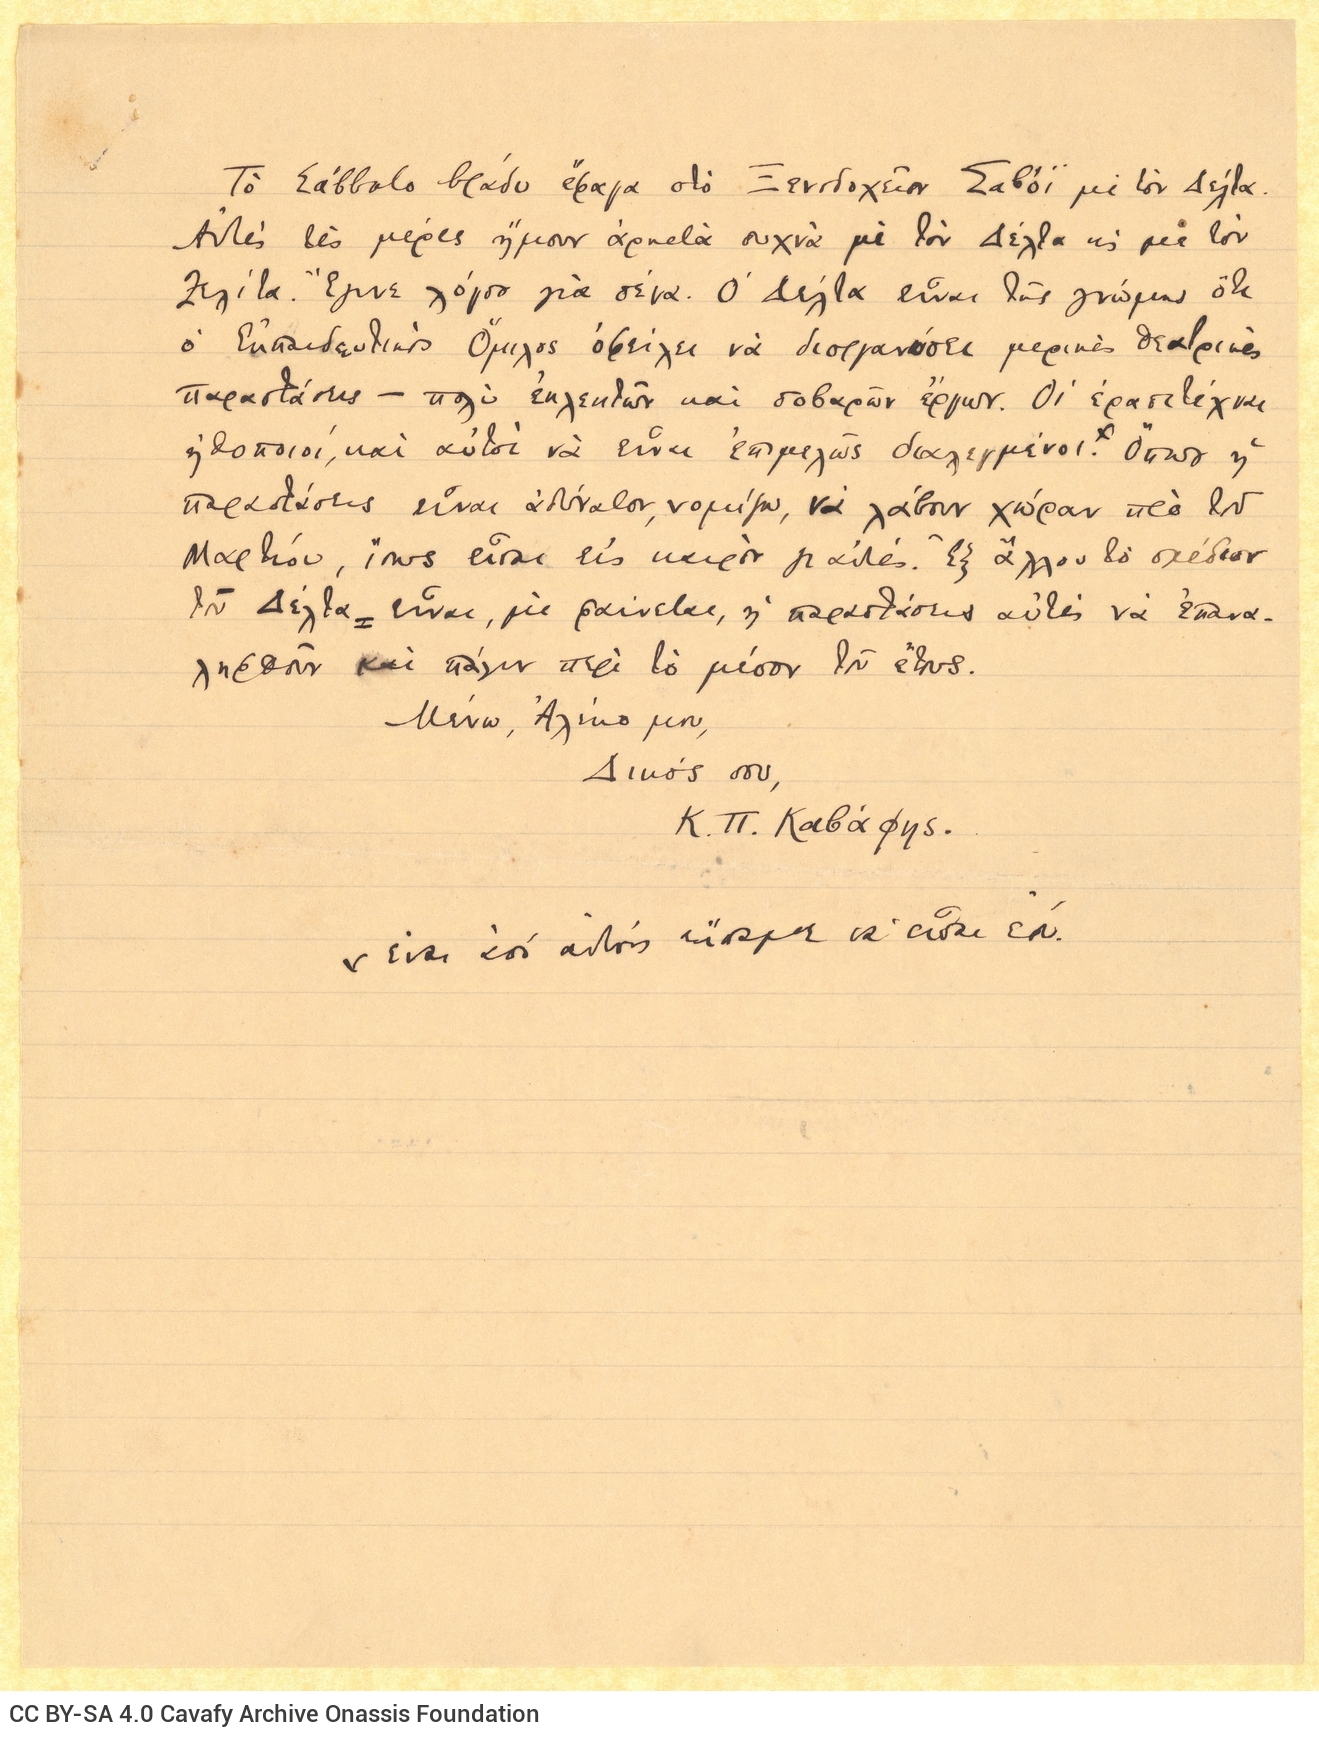 Τὸ Σάββατο βράδυ ἔφαγα στὸ Ξενοδοχεῖον Σαβόϊ μὲ τὸν Δέλτα.
Αὐτὲς τὲς μέρες ἤμουν ἀρκετὰ συχνὰ μὲ τὸν Δέλτα κς μὲ τὸν
Ζελίτα. Ἔγινε λόγος γιὰ σένα. Ὁ Δέλτα εἶναι τῆς γνώμης ὅτι
ὁ Ἐκπαιδευτικὸς Ὅμιλος ὀφείλει νὰ διοργανώσει μερικὲς θεατρικὲς
παραστάσεις — πολὺ ἐκλεκτῶν καὶ σοβαρῶν ἔργων. Οἱ ἐρασιτέχναι
ἠθοποιοί, καὶ αὐτοὶ νὰ εἶναι ἐπιμελῶς διαλεγμένοι. Ὅπου ἡ
παραστάσεις εἶναι ἀδύνατον, νομίζω, νὰ λάβουν χώραν πρὸ τοῦ
Μαρτίου, ἴσως εἶσαι εἰς καιρὸν γι αὐτές. Ἐξ ἄλλου τὸ σχέδιον
τοῦ Δέλτα εἶναι, μὲ φαίνεται, ἡ παραστάσεις αὐτὲς νὰ ἐπανα-
ληφθοῦν καὶ πάλιν περὶ τὸ μέσον τοῦ ἔτους.
Μένω, Ἀλέκο μου,
Δικός σου,
Κ. Π. Καβάφης.
εἶναι ἀπό αὐτούς νὰ εἶσαι
CC BY-SA 4.0 Cavafy Archive Onassis Foundation